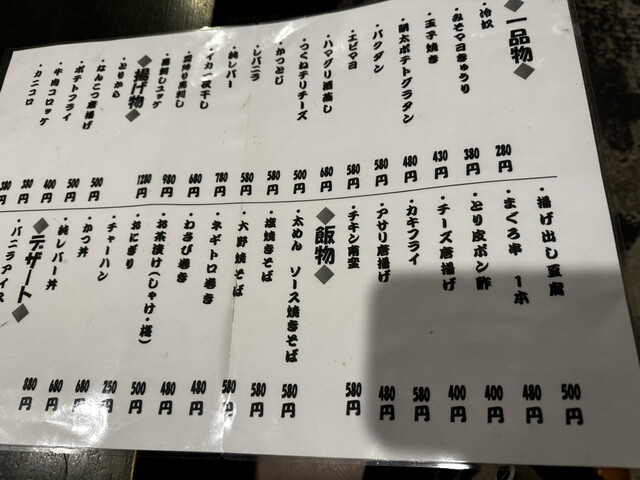 ◆一品物◆
・冷奴 280円
・みそマヨきゅうり 380円
・玉子焼き 430円
・明太ポテトグラタン 480円
・バクダン 580円
・エビマヨ 580円
・ハマグリ酒蒸し 680円
・つくねチリチーズ 500円
・かつとじ 580円
・レバニラ 580円
・純レバー 780円
・イカ一夜干し 680円
・霜降り馬刺し 980円
・馬刺しユッケ 1280円
◆揚げ物◆
・とりから 500円
・なんこつ唐揚げ 500円
・ポテトフライ 400円
・牛肉コロッケ 380円
・カニコロ 380円
・揚げ出し豆腐 500円
・まぐろ串 1本 480円
・とり皮ポン酢 400円
・チーズ唐揚げ 400円
・カキフライ 580円
・アサリ唐揚げ 480円
・チキン南蛮 580円
◆飯物◆
・太めん ソース焼きそば 580円
・塩焼きそば 580円
・大野焼そば 580円
・ネギトロ巻き 480円
・わさび巻き 480円
・お茶漬け(しゃけ・梅) 500円
・おにぎり 250円
・チャーハン 680円
・かつ丼 680円
・純レバー丼 880円
◆デザート◆
・バニラアイス